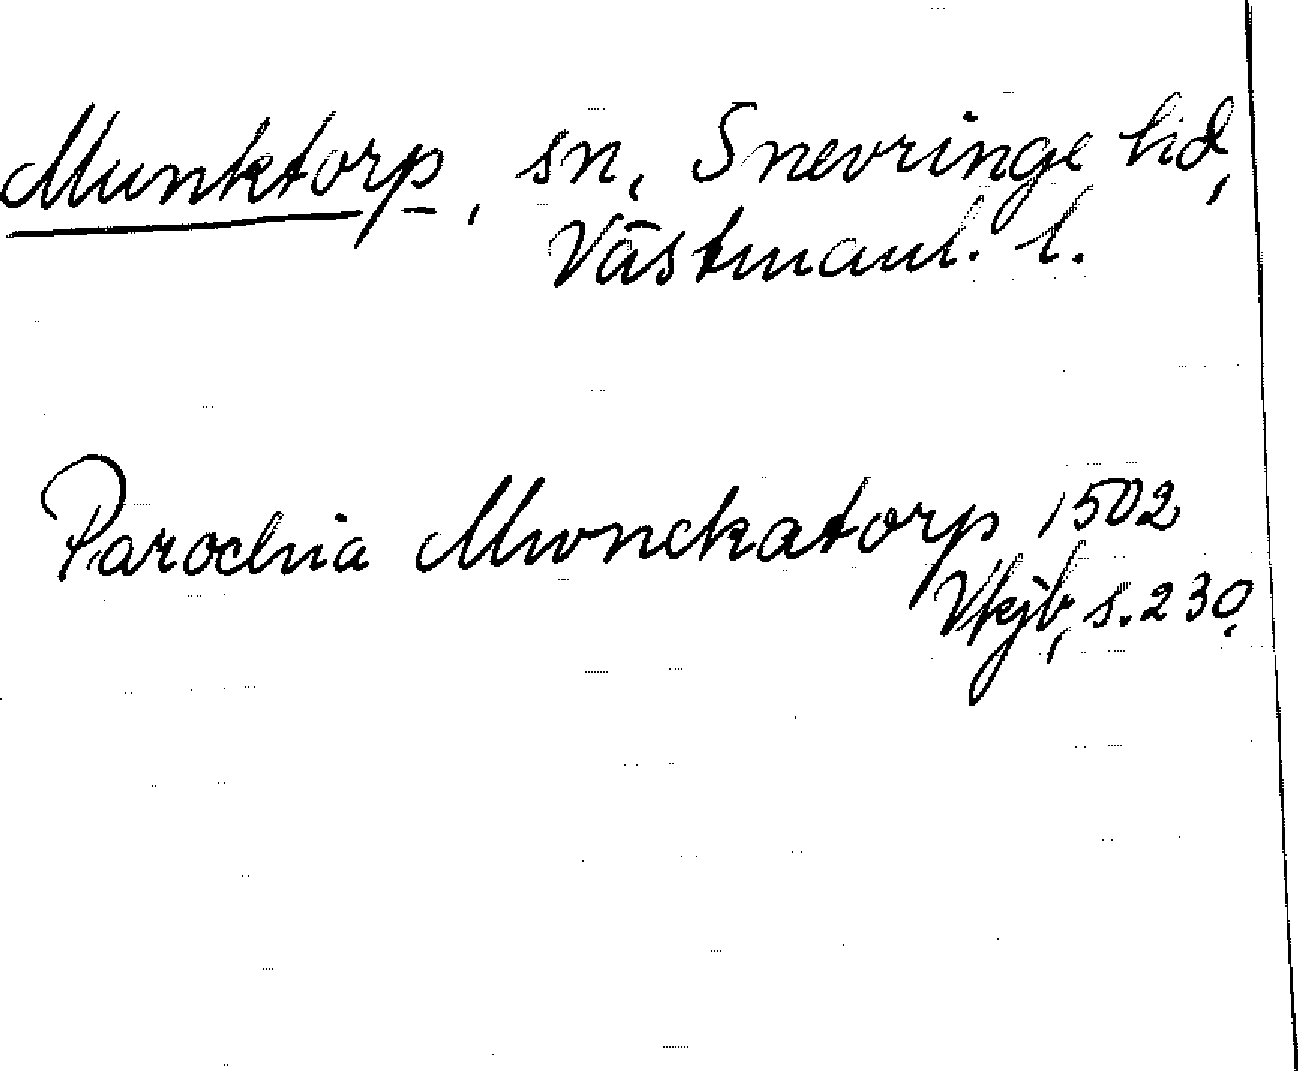 Munktorp, sn, Snevringe hd,
Västmanl. l.
Parochia Mwnckatorp 1502
Vkjb, s. 230.